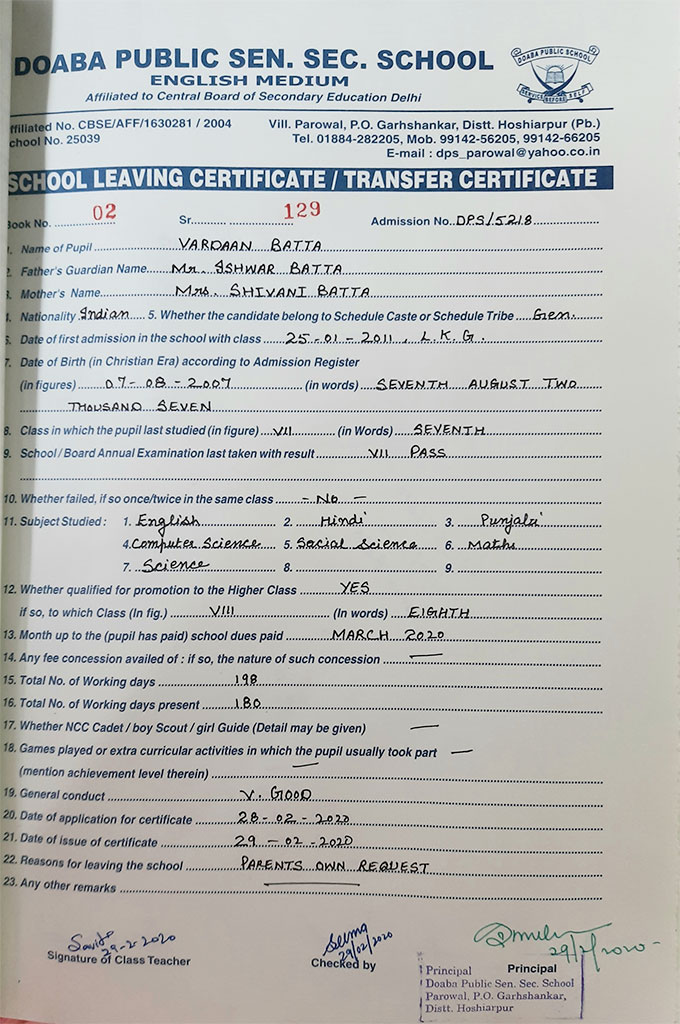 DOABA PUBLIC SEN. SEC. SCHOOL
ENGLISH MEDIUM
Affiliated to Central Board of Secondary Education Delhi
DOABA PUBLIC SCHOOL
SERVICE BEFORE SELF
ffiliated No. CBSE/AFF/1630281 / 2004
chool No. 25039
Vill. Parowal, P.O. Garhshankar, Distt. Hoshiarpur (Pb.)
Tel. 01884-282205, Mob. 99142-56205, 99142-66205
E-mail : dps_parowal@yahoo.co.in
SCHOOL LEAVING CERTIFICATE / TRANSFER CERTIFICATE
Book No. 02 Sr. 129 Admission No. DPS/5218
1. Name of Pupil VARDAAN BATTA
2. Father's Guardian Name Mr. ISHWAR BATTA
3. Mother's Name Mrs. SHIVANI BATTA
4. Nationality Indian 5. Whether the candidate belong to Schedule Caste or Schedule Tribe Gen.
6. Date of first admission in the school with class 25-01-2011, L.K.G.
7. Date of Birth (in Christian Era) according to Admission Register
(in figures) 07-08-2007 (in words) SEVENTH AUGUST TWO
THOUSAND SEVEN
8. Class in which the pupil last studied (in figure) VII (in Words) SEVENTH
9. School / Board Annual Examination last taken with result VII PASS
10. Whether failed, if so once/twice in the same class - No -
11. Subject Studied : 1. English 2. Hindi 3. Punjabi
4. Computer Science 5. Social Science 6. Maths
7. Science 8. 9.
12. Whether qualified for promotion to the Higher Class YES
if so, to which Class (In fig.) VIII (In words) EIGHTH
13. Month up to the (pupil has paid) school dues paid MARCH 2020
14. Any fee concession availed of : if so, the nature of such concession —
15. Total No. of Working days 198
16. Total No. of Working days present 180
17. Whether NCC Cadet / boy Scout / girl Guide (Detail may be given) —
18. Games played or extra curricular activities in which the pupil usually took part —
(mention achievement level therein) —
19. General conduct V. GOOD
20. Date of application for certificate 28-02-2020
21. Date of issue of certificate 29-02-2020
22. Reasons for leaving the school PARENTS OWN REQUEST
23. Any other remarks —
29-2-2020
Signature of Class Teacher
Seema
29/02/2020
Checked by
29/2/2020
Principal
Principal
Doaba Public Sen. Sec. School
Parowal, P.O. Garhshankar,
Distt. Hoshiarpur